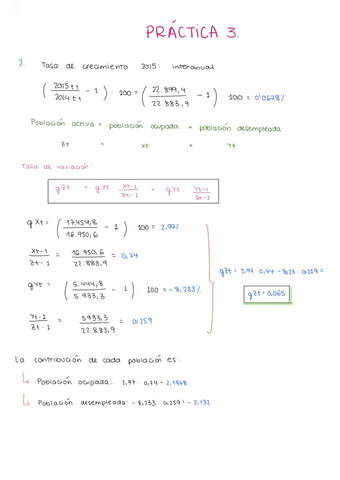 PRÁCTICA 3.
2. Tasa de crecimiento 2015: interanual
( 2015 t1 / 2014 t1 - 1 ) · 100 = ( 22.899,4 / 22.883,9 - 1 ) · 100 = 0'0678%
Población activa = población ocupada + población desempleada
Zt = Xt + Yt
Tasa de variación:
gZt = gXt · Xt-1 / Zt-1 + gYt · Yt-1 / Zt-1
gXt = ( 17.454,8 / 16.950,6 - 1 ) · 100 = 2,97%
Xt-1 / Zt-1 = 16.950,6 / 22.883,9 = 0,74
gYt = ( 5.444,8 / 5.933,3 - 1 ) · 100 = -8,233%
Yt-1 / Zt-1 = 5933,3 / 22.883,9 = 0,259
gZt = 2,97 · 0,74 - 8,23 · 0,259 =
gZt = 0,065
La contribución de cada población es:
Población ocupada: 2,97 · 0,74 = 2,1978
Población desempleada: -8,233 · 0,259 = -2,132